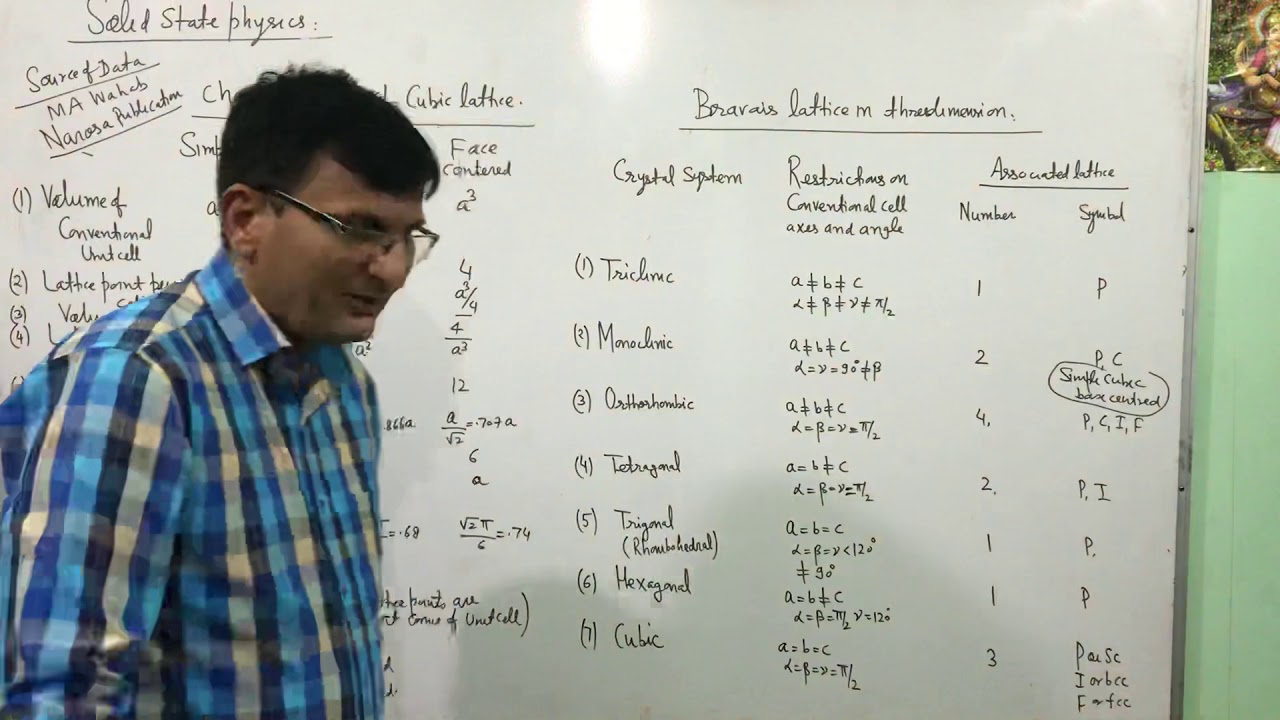 Solid State physics:
Source of Data
MA Wahab
Narosa Publication
Cubic lattice.
Face
centered
(1) Volume of
Conventional
Unit cell
a³
(2) Lattice point
4
(3)
a³/4
(4)
a²
4/a³
12
.866a
a/√2 = .707a
6
a
= .68
√2π/6 = .74
points are
of Unit cell)
Bravais lattice in three dimension.
Crystal System
Restrictions on
Conventional cell
axes and angle
Associated lattice
Number
Symbol
(1) Triclinic
a ≠ b ≠ c
α ≠ β ≠ γ ≠ π/2
1
P
(2) Monoclinic
a ≠ b ≠ c
α = γ = 90° ≠ β
2
P, C
Simple Cubic
base centred
(3) Orthorhombic
a ≠ b ≠ c
α = β = γ = π/2
4,
P, C, I, F
(4) Tetragonal
a = b ≠ c
α = β = γ = π/2
2,
P, I
(5) Trigonal
(Rhombohedral)
a = b = c
α = β = γ < 120°
≠ 90°
1
P,
(6) Hexagonal
a = b ≠ c
α = β = π/2 γ = 120°
1
P
(7) Cubic
a = b = c
α = β = γ = π/2
3
P or Sc
I or bcc
F or fcc